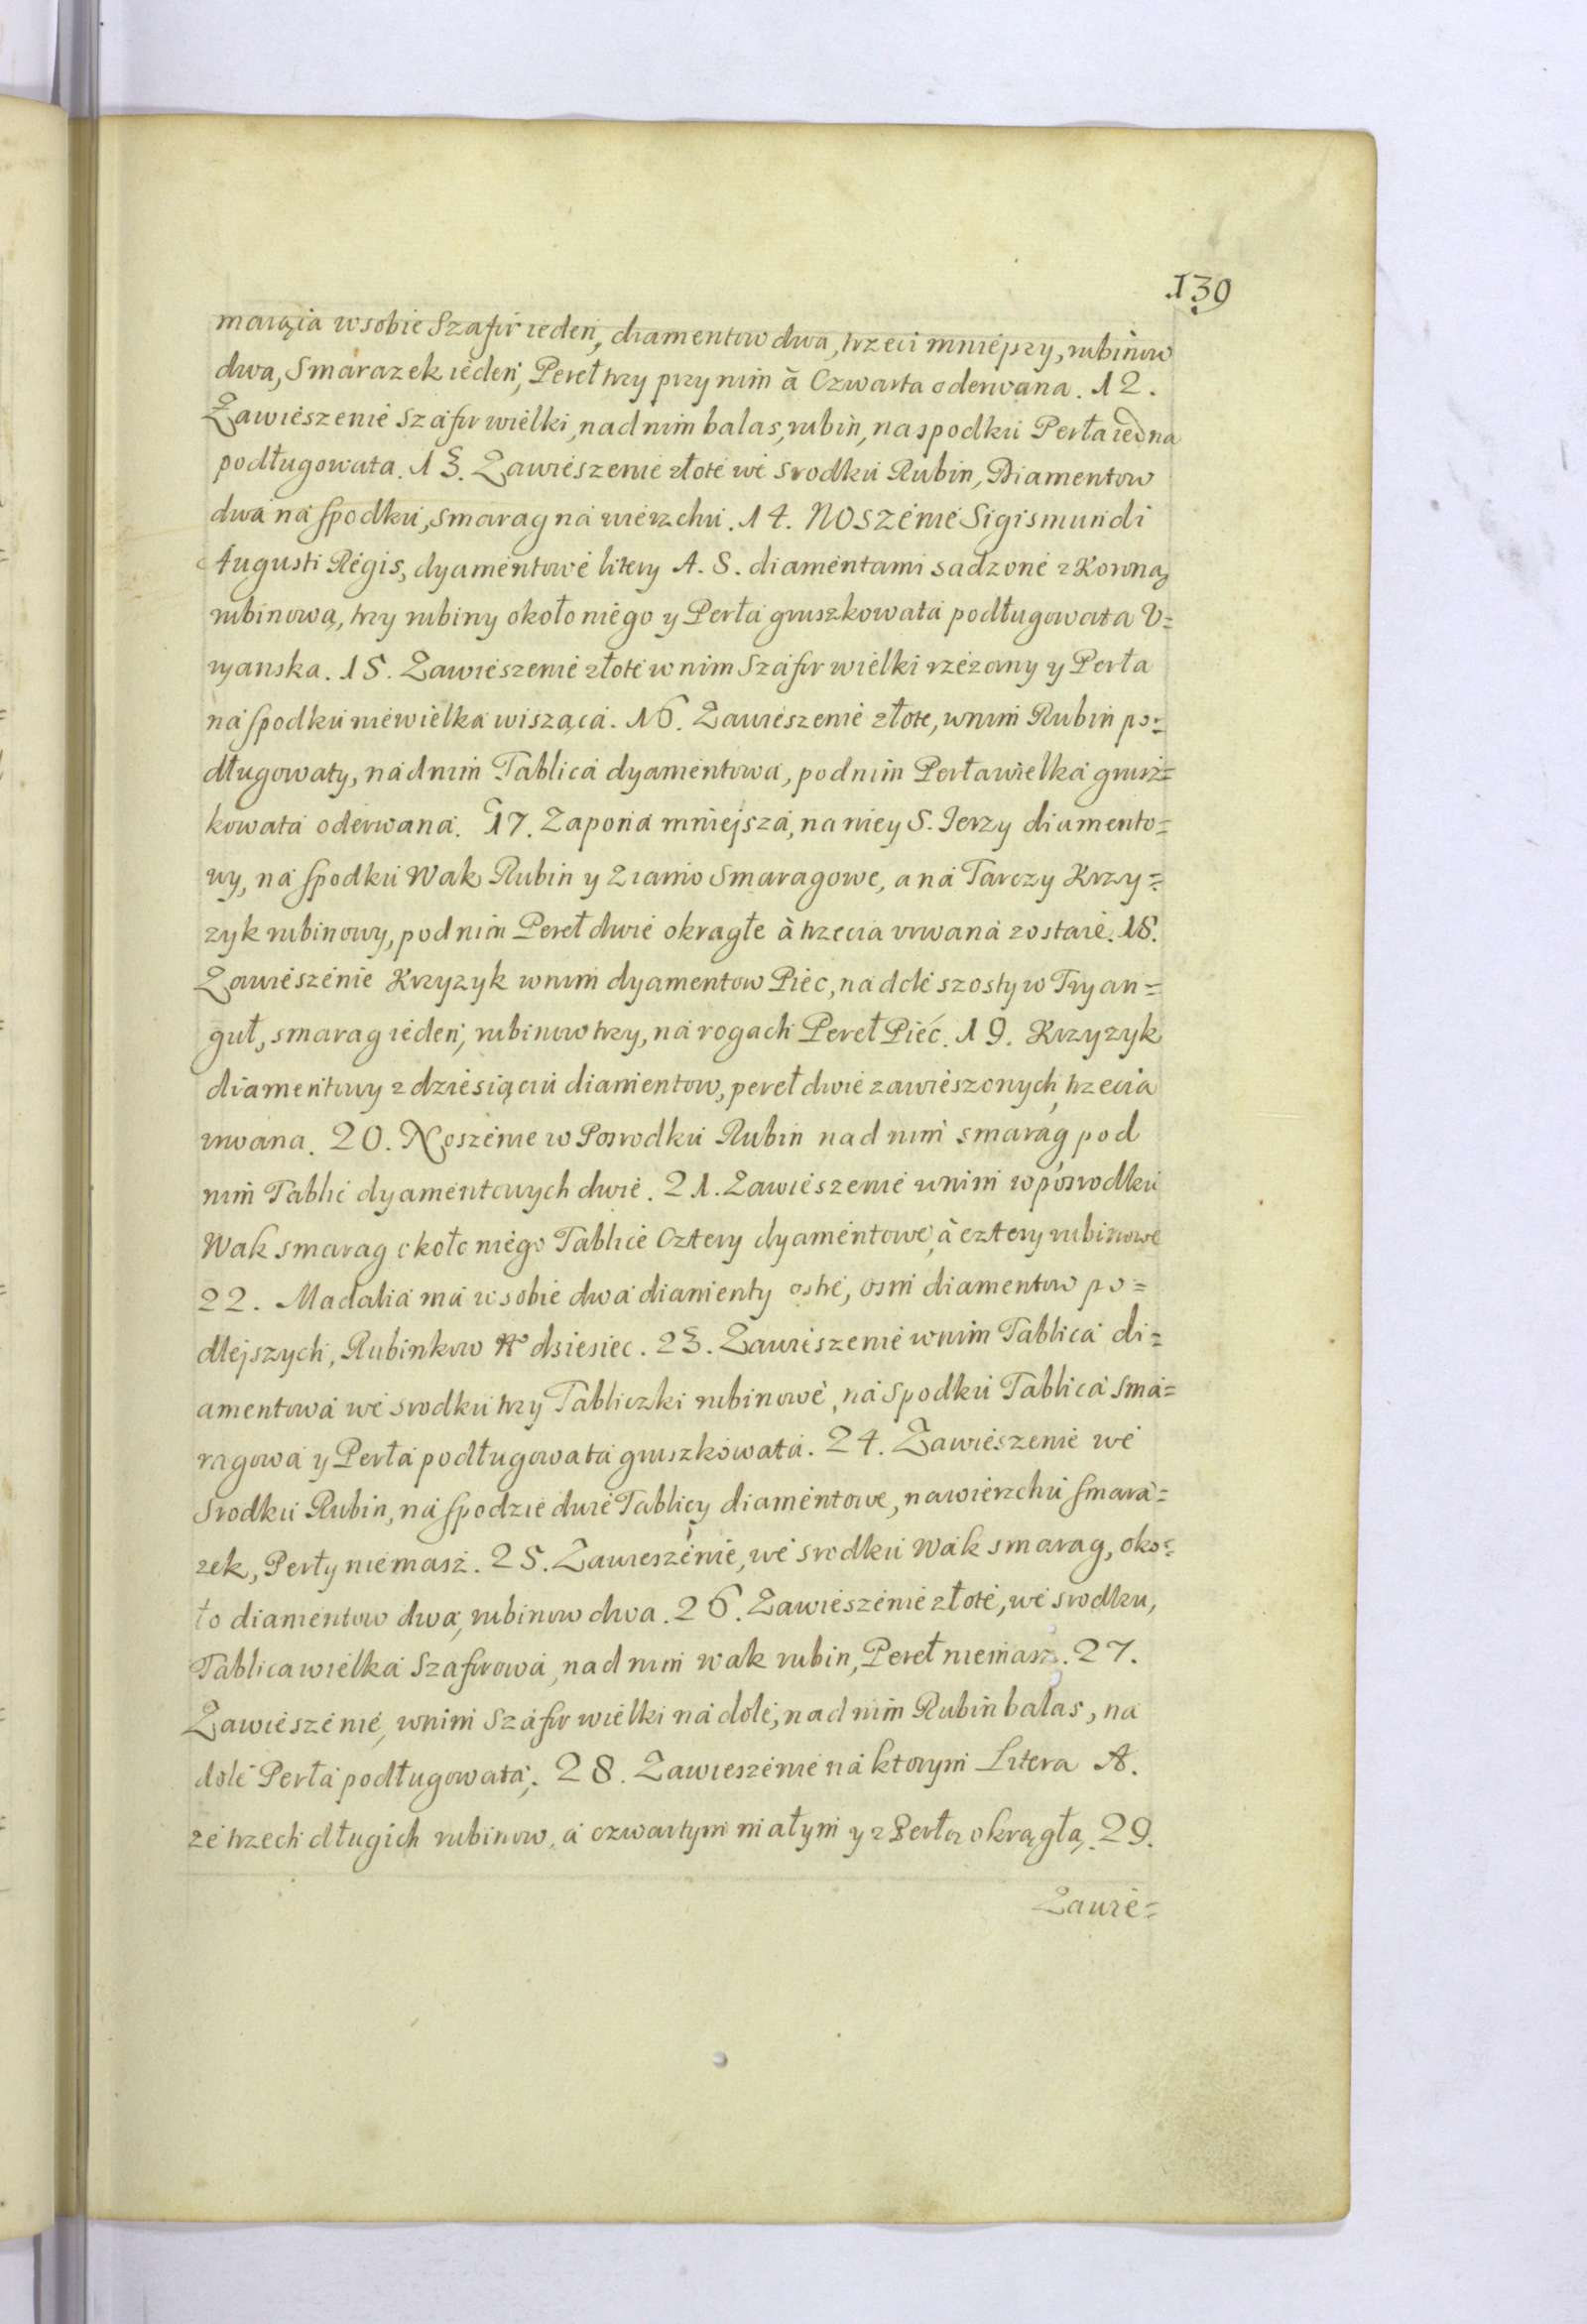 139
maiąia w sobie Szafir ieden, diamentow dwa, trzeci mnieјszy, rubinow
dwa, Smarazek ieden, Pereł trzy przy nim à Czwarta oderwana. 12.
Zawieszenie Szafir wielki, nad nim balas, rubin, na spodku Perła iedna
podługowata. 13. Zawieszenie złote we srodku Rubin, Diamentow
dwa na spodku, smarag na wierzchu. 14. Noszenie Sigismundi
Augusti Regis, dyamentowe litery A. S. diamentami sadzone z Koroną
rubinową, trzy rubiny około niego y Perła gruszkowata podługowata V=
ryanska. 15. Zawieszenie złote w nim Szafir wielki rzezany y Perła
na spodku niewielka wisząca. 16. Zawieszenie złote, w nim Rubin po=
długowaty, nad nim Tablica dyamentowa, pod nim Perła wielka grusz=
kowata oderwana. 17. Zapona mnieјsza, na niey S. Jerzy diamento=
wy, na spodku Wak Rubin y Ziarno Smaragowe, a na Tarczy Krzy=
zyk rubinowy, pod nim Pereł dwie okragłe à trzecia vrwana zostaie. 18.
Zawieszenie Krzyzyk w nim dyamentow Piec, na dole szosty w Tryan=
guł, smarag ieden, rubinow trzy, na rogach Pereł Pieć. 19. Krzyzyk
diamentowy z dziesiąciu diamentow, pereł dwie zawieszonych, trzecia
vrwana. 20. Noszenie w Posrodku Rubin nad nim smarag pod
nim Tablic dyamentowych dwie. 21. Zawieszenie w nim w posrodku
Wak smarag około niego Tablice Cztery dyamentowe, à cztery rubinowe
22. Madalia ma w sobie dwa diamenty ostre, osm diamentow po=
dlejszych, Rubinkow dsiesiec. 23. Zawieszenie w nim Tablica di=
amentowa we srodku trzy Tabliczki rubinowe, na spodku Tablica Sma=
ragowa y Perła podługowata gruszkowata. 24. Zawieszenie we
Srodku Rubin, na spodzie dwie Tablicy diamentowe, na wierzchu smara=
zek, Perły niemasz. 25. Zawieszenie, we srodku Wak smarag, oko=
ło diamentow dwa, rubinow dwa. 26. Zawieszenie złote, we srodku,
Tablica wielka Szafirowa, nad nim wak rubin, Pereł niemasz. 27.
Zawieszenie, w nim Szafir wielki na dole, nad nim Rubin balas, na
dole Perła podługowata. 28. Zawieszenie na ktorym Litera A.
ze trzech długich rubinow, a czwartym małym y z Perłą okrągłą. 29.
Zawie=